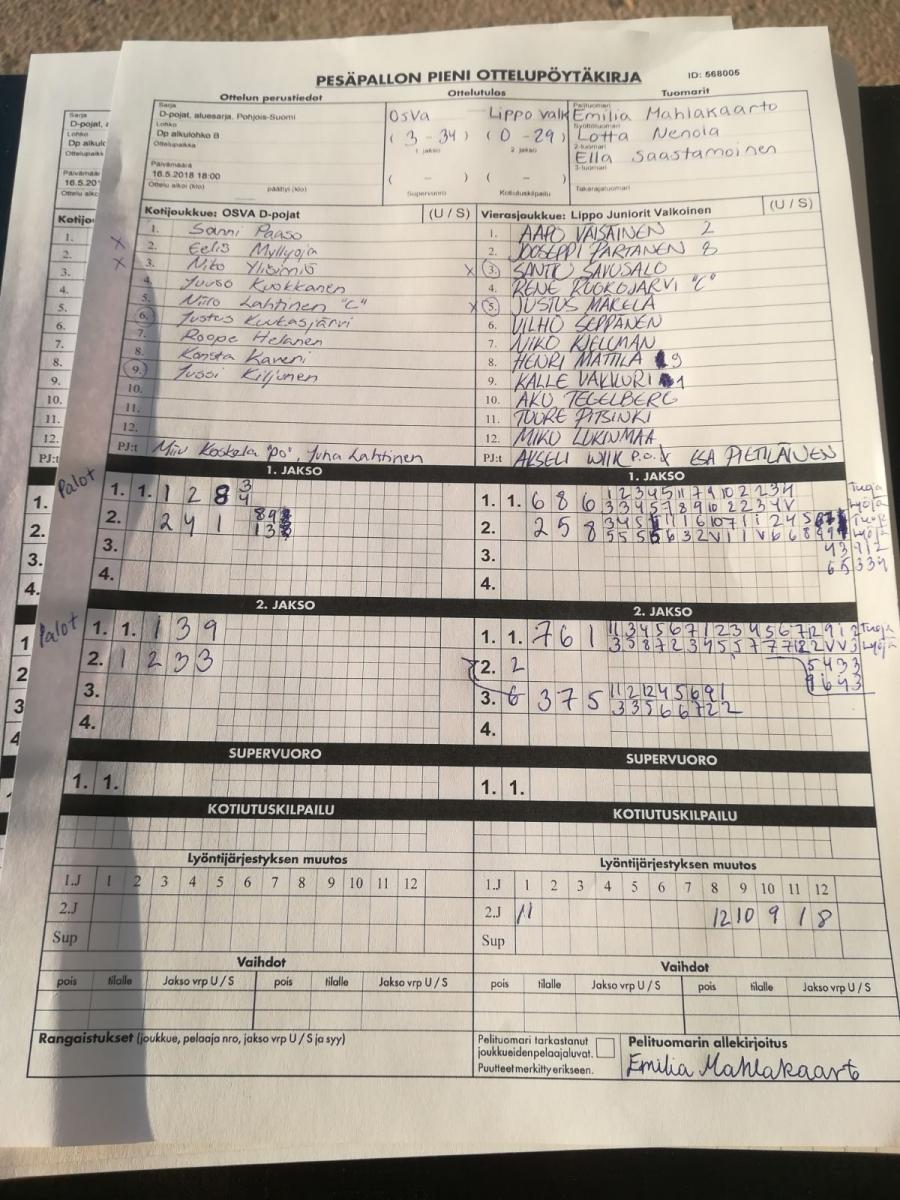 PESÄPALLON PIENI OTTELUPÖYTÄKIRJA
ID: 568005
Ottelun perustiedot
Ottelutulos
Tuomarit
Sarja
D-pojat, aluesarja, Pohjois-Suomi
Lohko
Dp alkulohko B
Ottelupaikka
Päivämäärä
16.5.2018 18:00
Ottelu alkoi (klo)
päättyi (klo)
OsVa
Lippo Valk
( 3 - 34 ) ( 0 - 29 )
1. jakso
2. jakso
( - ) ( - )
Supervuoro
Kotiutuskilpailu
Pelituomari
Emilia Mahlakaarto
Syöttötuomari
Lotta Nenola
2-tuomari
Ella Saastamoinen
3-tuomari
Takarajatuomari
Kotijoukkue: OSVA D-pojat (U / S)
1. Sanni Paaso
x 2. Eelis Myllyoja
x 3. Nito Ylisirniö
4. Juuso Kuokkanen
5. Niilo Lahtinen "C"
6. Justus Kuukasjärvi
7. Roope Helanen
8. Konsta Kaveri
9. Jussi Kiljunen
10.
11.
12.
PJ:t Miiu Koskela "po", Juha Lahtinen
Vierasjoukkue: Lippo Juniorit Valkoinen (U / S)
1. AAPO VÄISÄINEN 2
2. JOOSEPPI PARTANEN 8
x 3. SANTTU SAVUSALO
4. RENE RUOKOJÄRVI "C"
x 5. JUSTUS MÄKELÄ
6. VILHO SEPPÄNEN
7. NIKO KJELLMAN
8. HENRI MATTILA 9
9. KALLE VAKKURI 1
10. AKU TEGELBERG
11. TUURE PITSINKI
12. MIKU LUKINMAA
PJ:t AKSELI WIIK p.o. & ESA PIETILÄINEN
1. JAKSO
Palot
1. 1. 1 2 8 3
4
2. 2 4 1 8 9
1 3
3.
4.
1. JAKSO
1. 1. 6 8 6 1 2 3 4 5 11 7 9 10 2 2 3 4 Tuoja
3 3 4 5 7 8 9 10 2 2 3 4 V Lyöjä
2. 2 5 8
Tuoja
Lyöjä
3. 4 3 9 1 2
6 5 3 3 4
4.
2. JAKSO
Palot
1. 1. 1 3 9
2. 1 2 3 3
3.
4.
2. JAKSO
1. 1. 7 6 1 11 3 4 5 6 7 1 2 3 4 5 6 7 12 9 1 2 Tuoja
3 3 8 7 2 3 4 5 5 7 7 7 12 2 V V 3 Lyöjä
2. 2 5 4 3 3
9 6 4 3
3. 6 3 7 5 11 2 12 4 5 6 9 1
3 3 5 6 6 7 2 2
4.
SUPERVUORO
1. 1.
SUPERVUORO
1. 1.
KOTIUTUSKILPAILU
KOTIUTUSKILPAILU
Lyöntijärjestyksen muutos
1.J 1 2 3 4 5 6 7 8 9 10 11 12
2.J
Sup
Lyöntijärjestyksen muutos
1.J 1 2 3 4 5 6 7 8 9 10 11 12
2.J 11 12 10 9 1 8
Sup
Vaihdot
pois tilalle Jakso vrp U / S pois tilalle Jakso vrp U / S
Vaihdot
pois tilalle Jakso vrp U / S pois tilalle Jakso vrp U / S
Rangaistukset (joukkue, pelaaja nro, jakso vrp U / S ja syy)
Pelituomari tarkastanut
joukkueidenpelaajaluvat.
Puutteet merkitty erikseen.
Pelituomarin allekirjoitus
Emilia Mahlakaarto